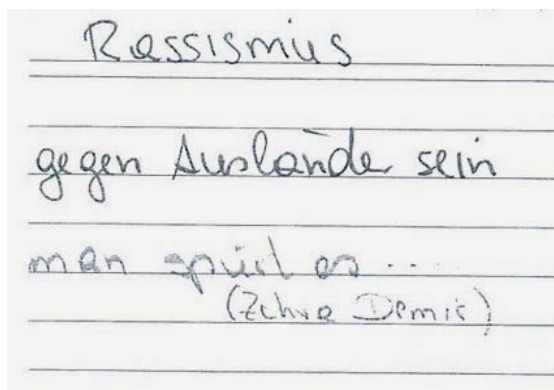 Rassismus
gegen Ausländer sein
man spürt es ....
(Zehra Demir)